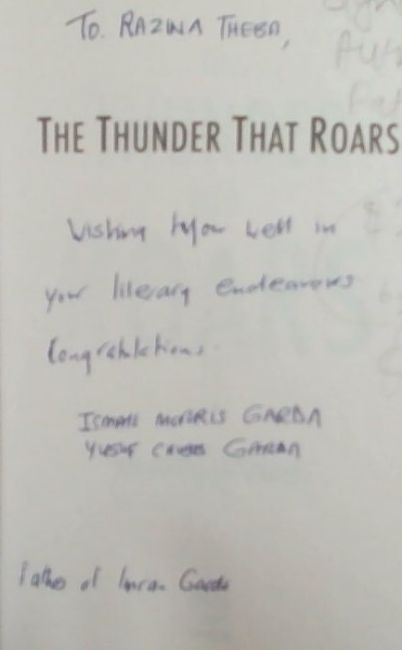 To. RAZINA THEBA,
THE THUNDER THAT ROARS
Wishing you well in
your literary endeavours
Congratulations.
ISMAIL GARDA
YUSUF GARDA
father of Imran Garda